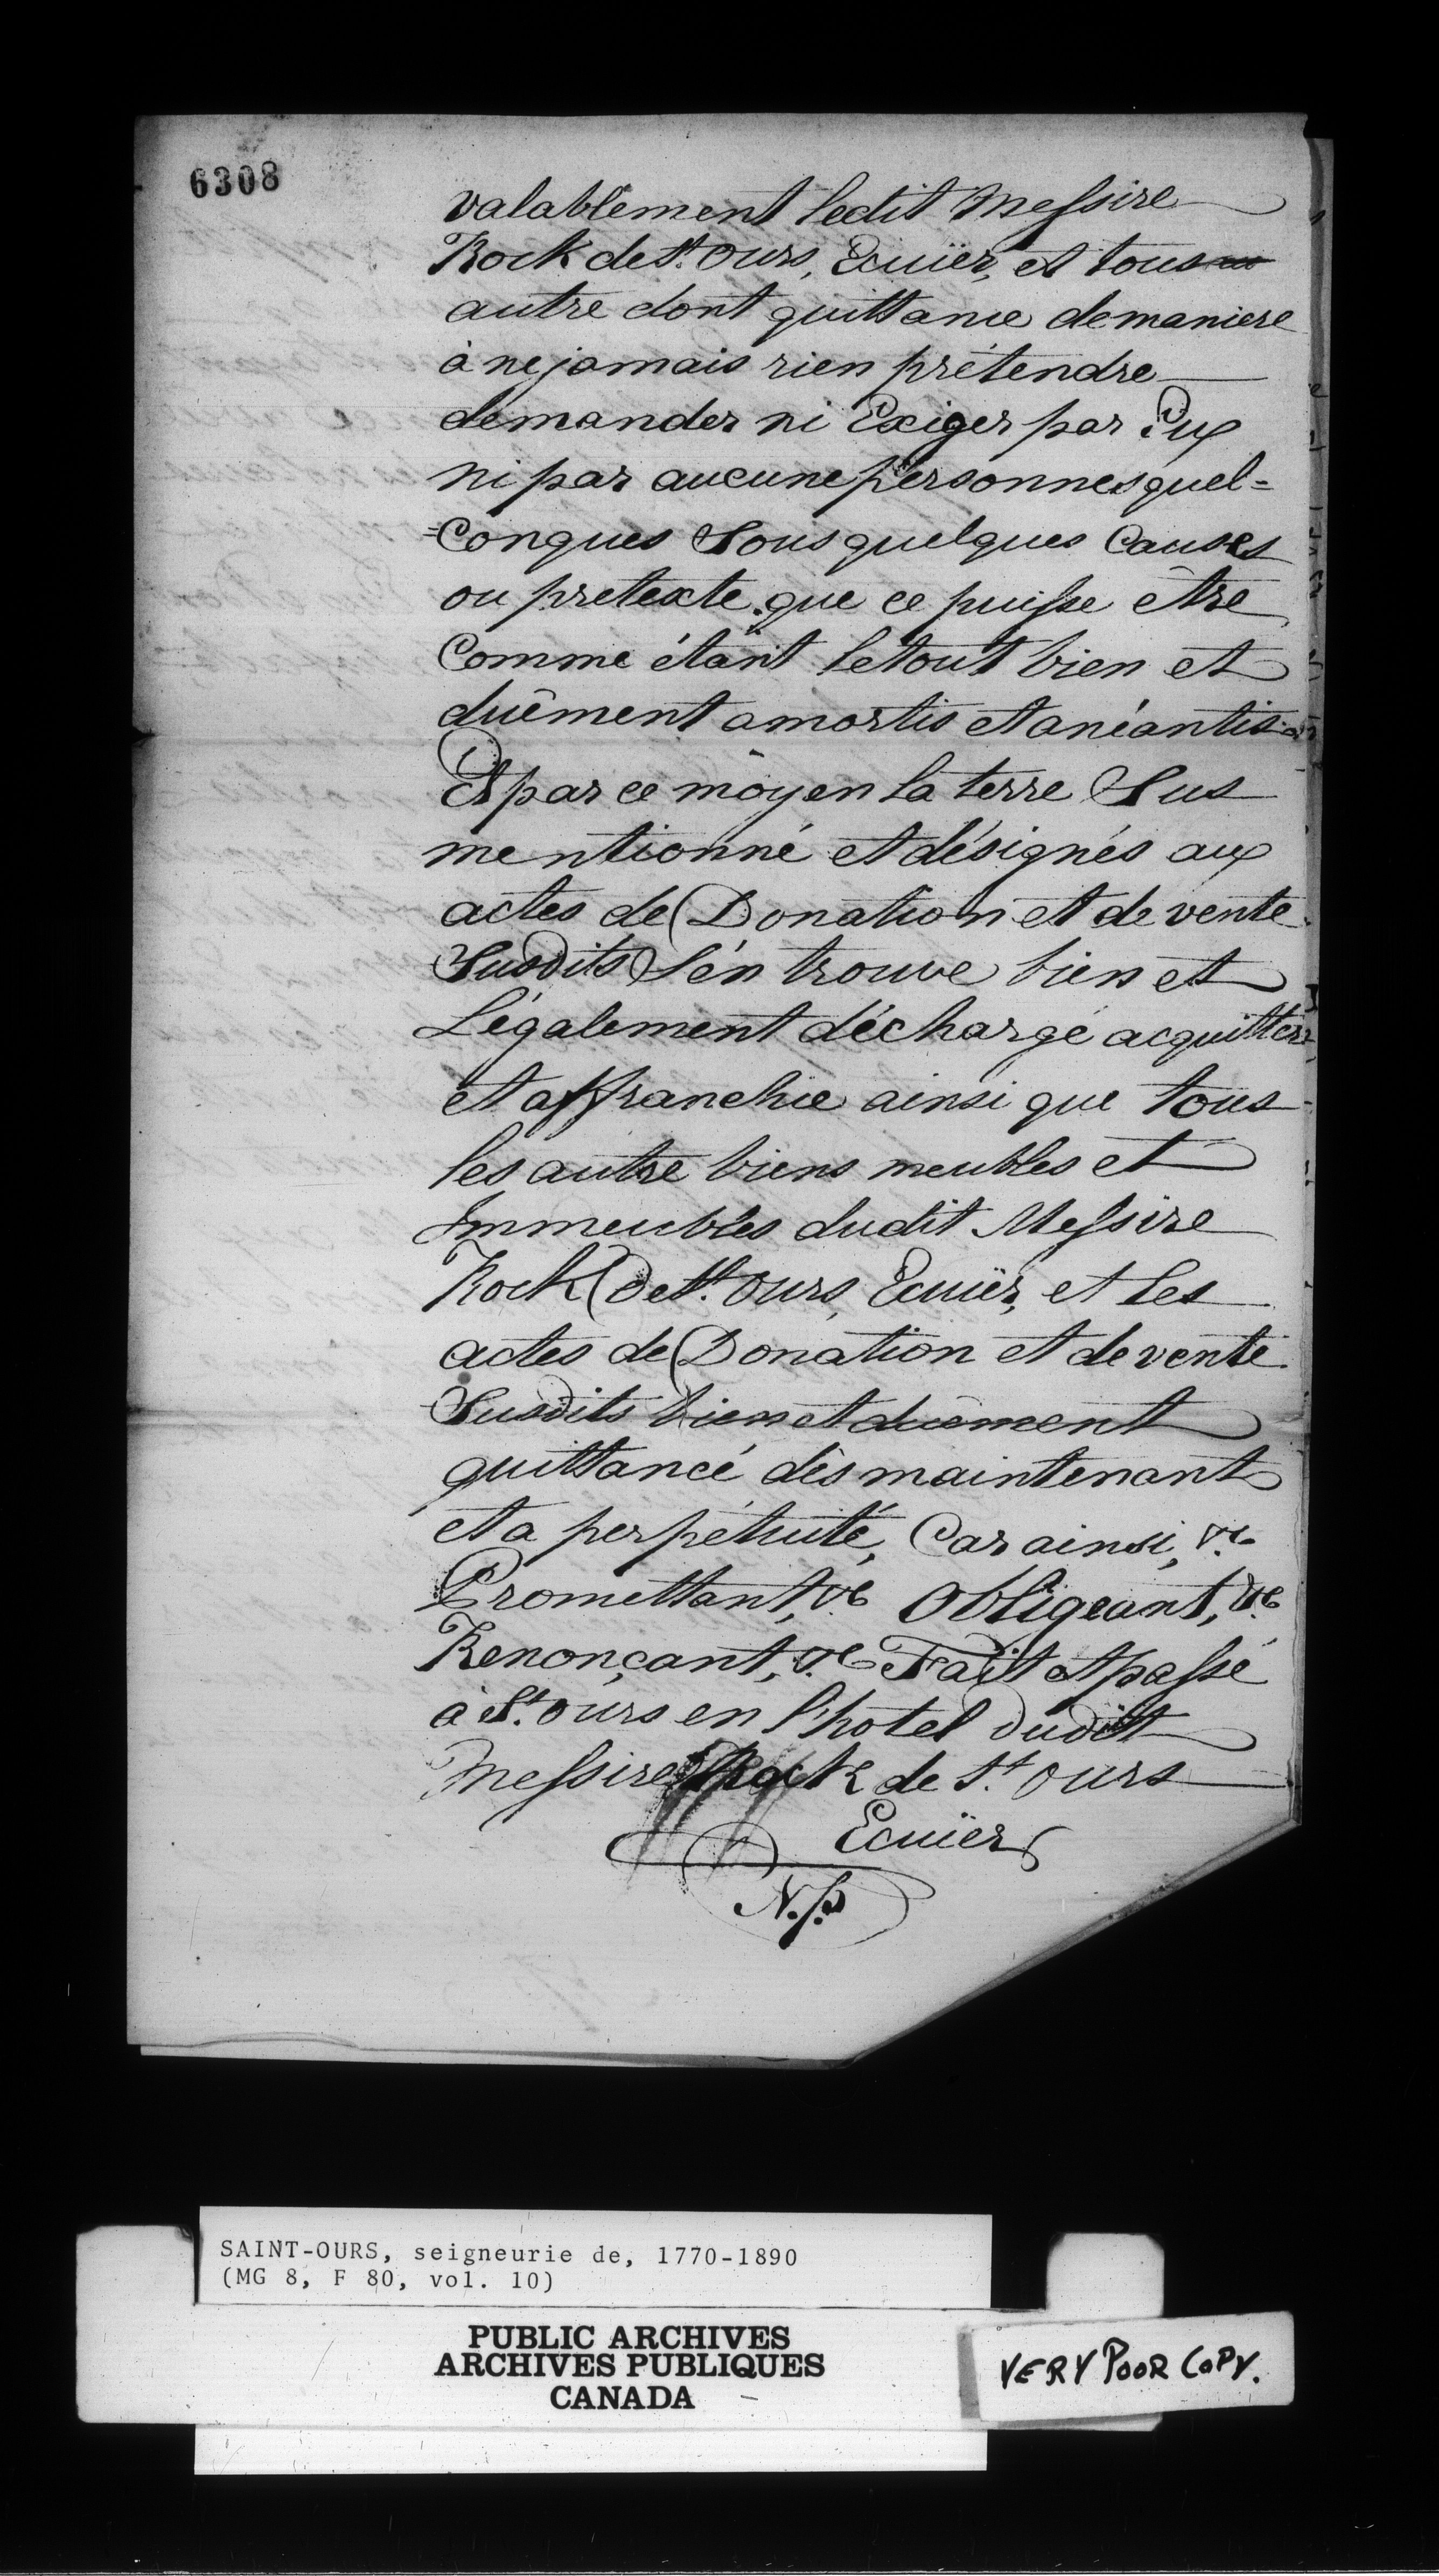 6308
valablement ledit Messire
Rock de St. Ours, Ecuïer, et tous
autre dont quittance de maniere
à ne jamais rien prétendre
demander ni Exiger par Eux
ni par aucune personnes quel=
=conques Sous quelques Causes
ou pretexte que ce puisse être
Comme étant le tout bien et
duêment amortis et anéantis
Et par ce moyen la terre Sus
mentionné et désignés aux
actes de Donation et de vente
Susdits S'en trouve bien et
Légalement déchargé acquittér
et affranchie ainsi que tous
les autre biens meubles et
Immeubles dudit Messire
Rock De St. Ours, Ecuïer, et les
actes de Donation et de vente
Susdits bien et duement
quittancé dès maintenant
et a perpétuité, Car ainsi, &c.
Promettant, &c Obligeant, &c
Renonçant, &c Fait et passé
à St. Ours en l'hotel dudit
Messire Rock de St. Ours
Ecuïer
N.p.
SAINT-OURS, seigneurie de, 1770-1890
(MG 8, F 80, vol. 10)
PUBLIC ARCHIVES
ARCHIVES PUBLIQUES
CANADA
VERY POOR COPY.